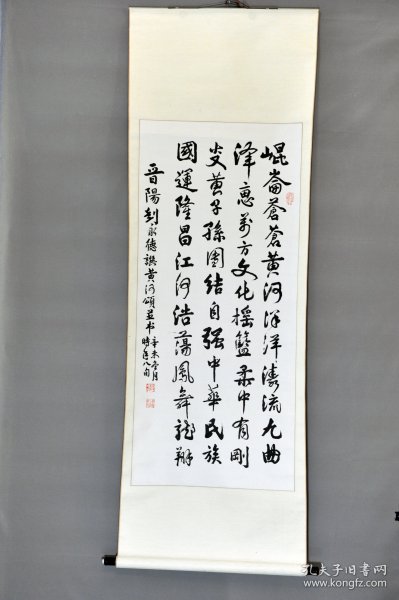 崐崙蒼蒼黄河洋洋濤流九曲
澤惠万方文化摇籃柔中有剛
炎黄子孫團结自强中華民族
國運隆昌江河浩蕩鳳舞龍翔
晋陽刘永德譔黄河頌並书辛未壹月
時年八旬
孔夫子旧书网
www.kongfz.com